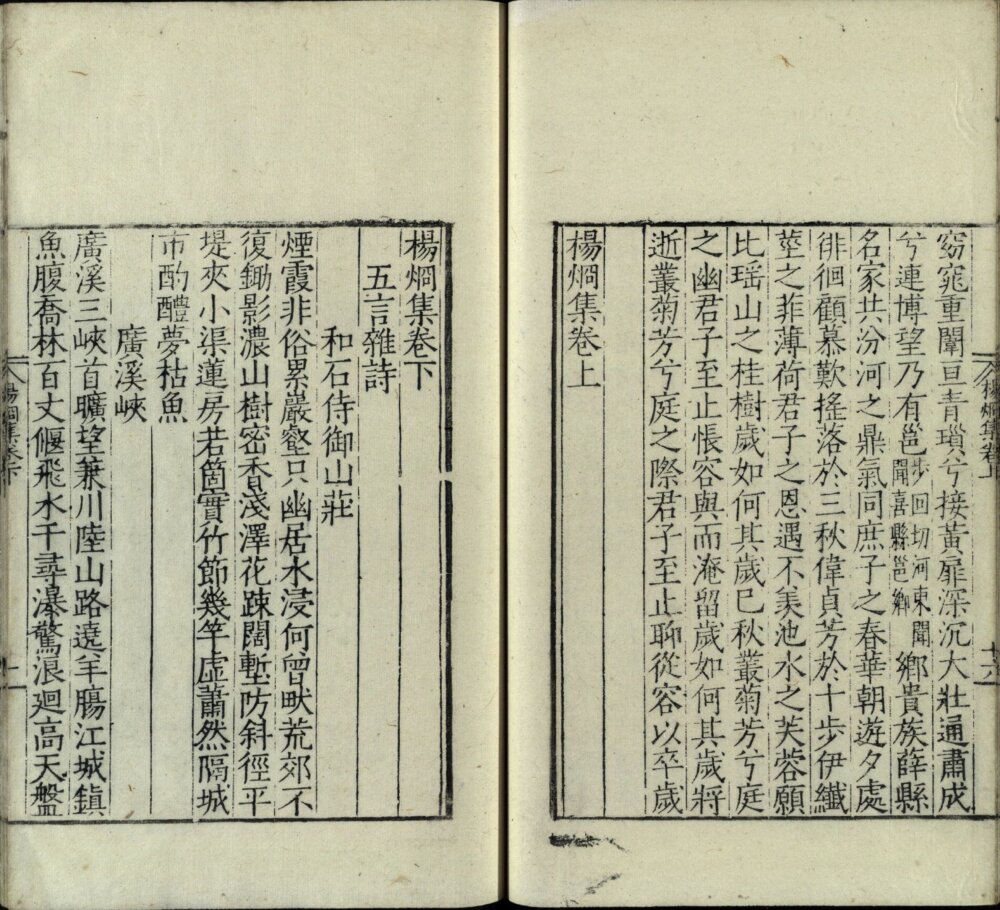 窈窕重闈亘青瑣兮接黃扉深沉大壯通肅成
兮連博望乃有邕步回切河東聞聞喜縣邕鄉鄉貴族薛縣
名家共汾河之鼎氣同庶子之春華朝遊夕處
徘徊顧慕歎搖落於三秋偉貞芳於十步伊纖
莖之菲薄荷君子之恩遇不羨池水之芙蓉願
比瑶山之桂樹歲如何其歲巳秋叢菊芳兮庭
之幽君子至止悵容與而淹留歲如何其歲將
逝叢菊芳兮庭之際君子至止聊從容以卒歲
楊烱集卷上
楊烱集卷上
十六
楊烱集卷下
五言雜詩
和石侍御山莊
煙霞非俗累巖壑只幽居水浸何曾畎荒郊不
復鋤影濃山樹密香淺澤花疎闊塹防斜徑平
堤夾小渠蓮房若箇實竹節幾竿虛蕭然隔城
市酌醴夢枯魚
廣溪峽
廣溪三峽首曠望兼川陸山路遶羊膓江城鎮
魚腹喬林百丈偃飛水千尋瀑驚浪廻高天盤
楊烱集卷下
一